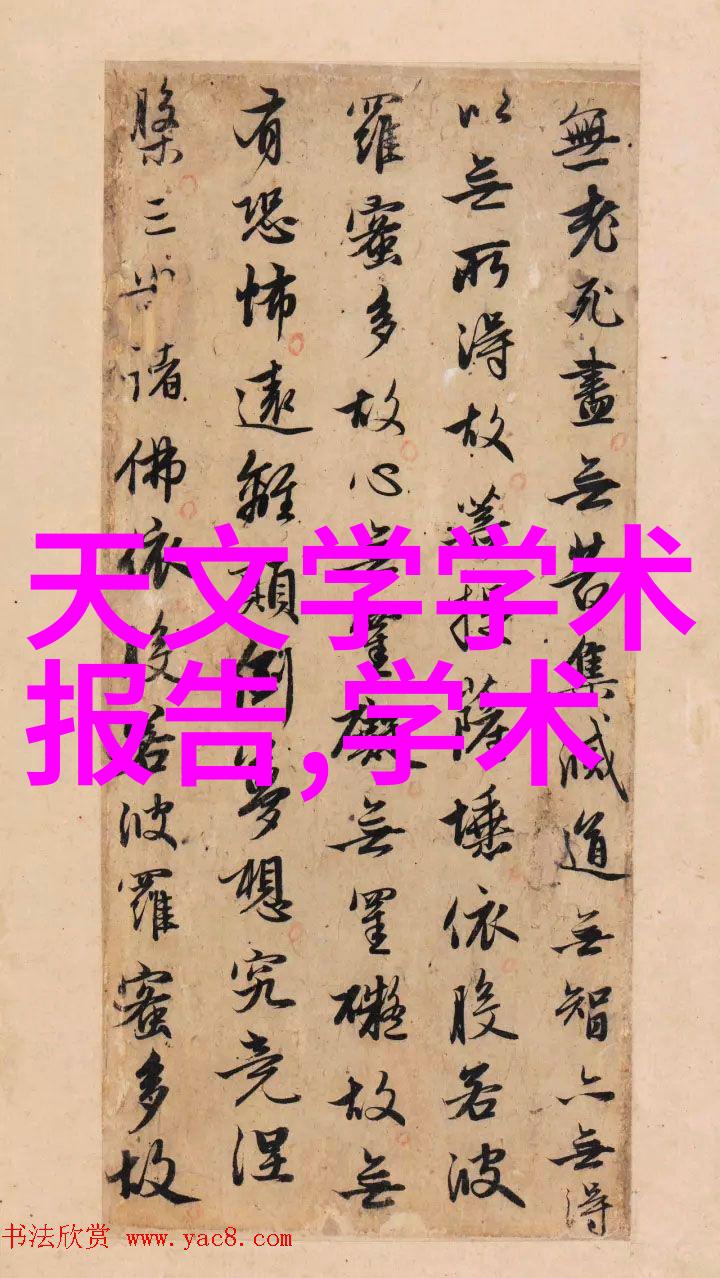 無老死盡無苦集滅道無智亦無得
以無所得故菩提薩埵依般若波
羅蜜多故心無罣礙無罣礙故無
有恐怖遠離顛倒夢想究竟涅
槃三世諸佛依般若波羅蜜多故
天文学学术
报告,学术
书法欣赏 www.yac8.com